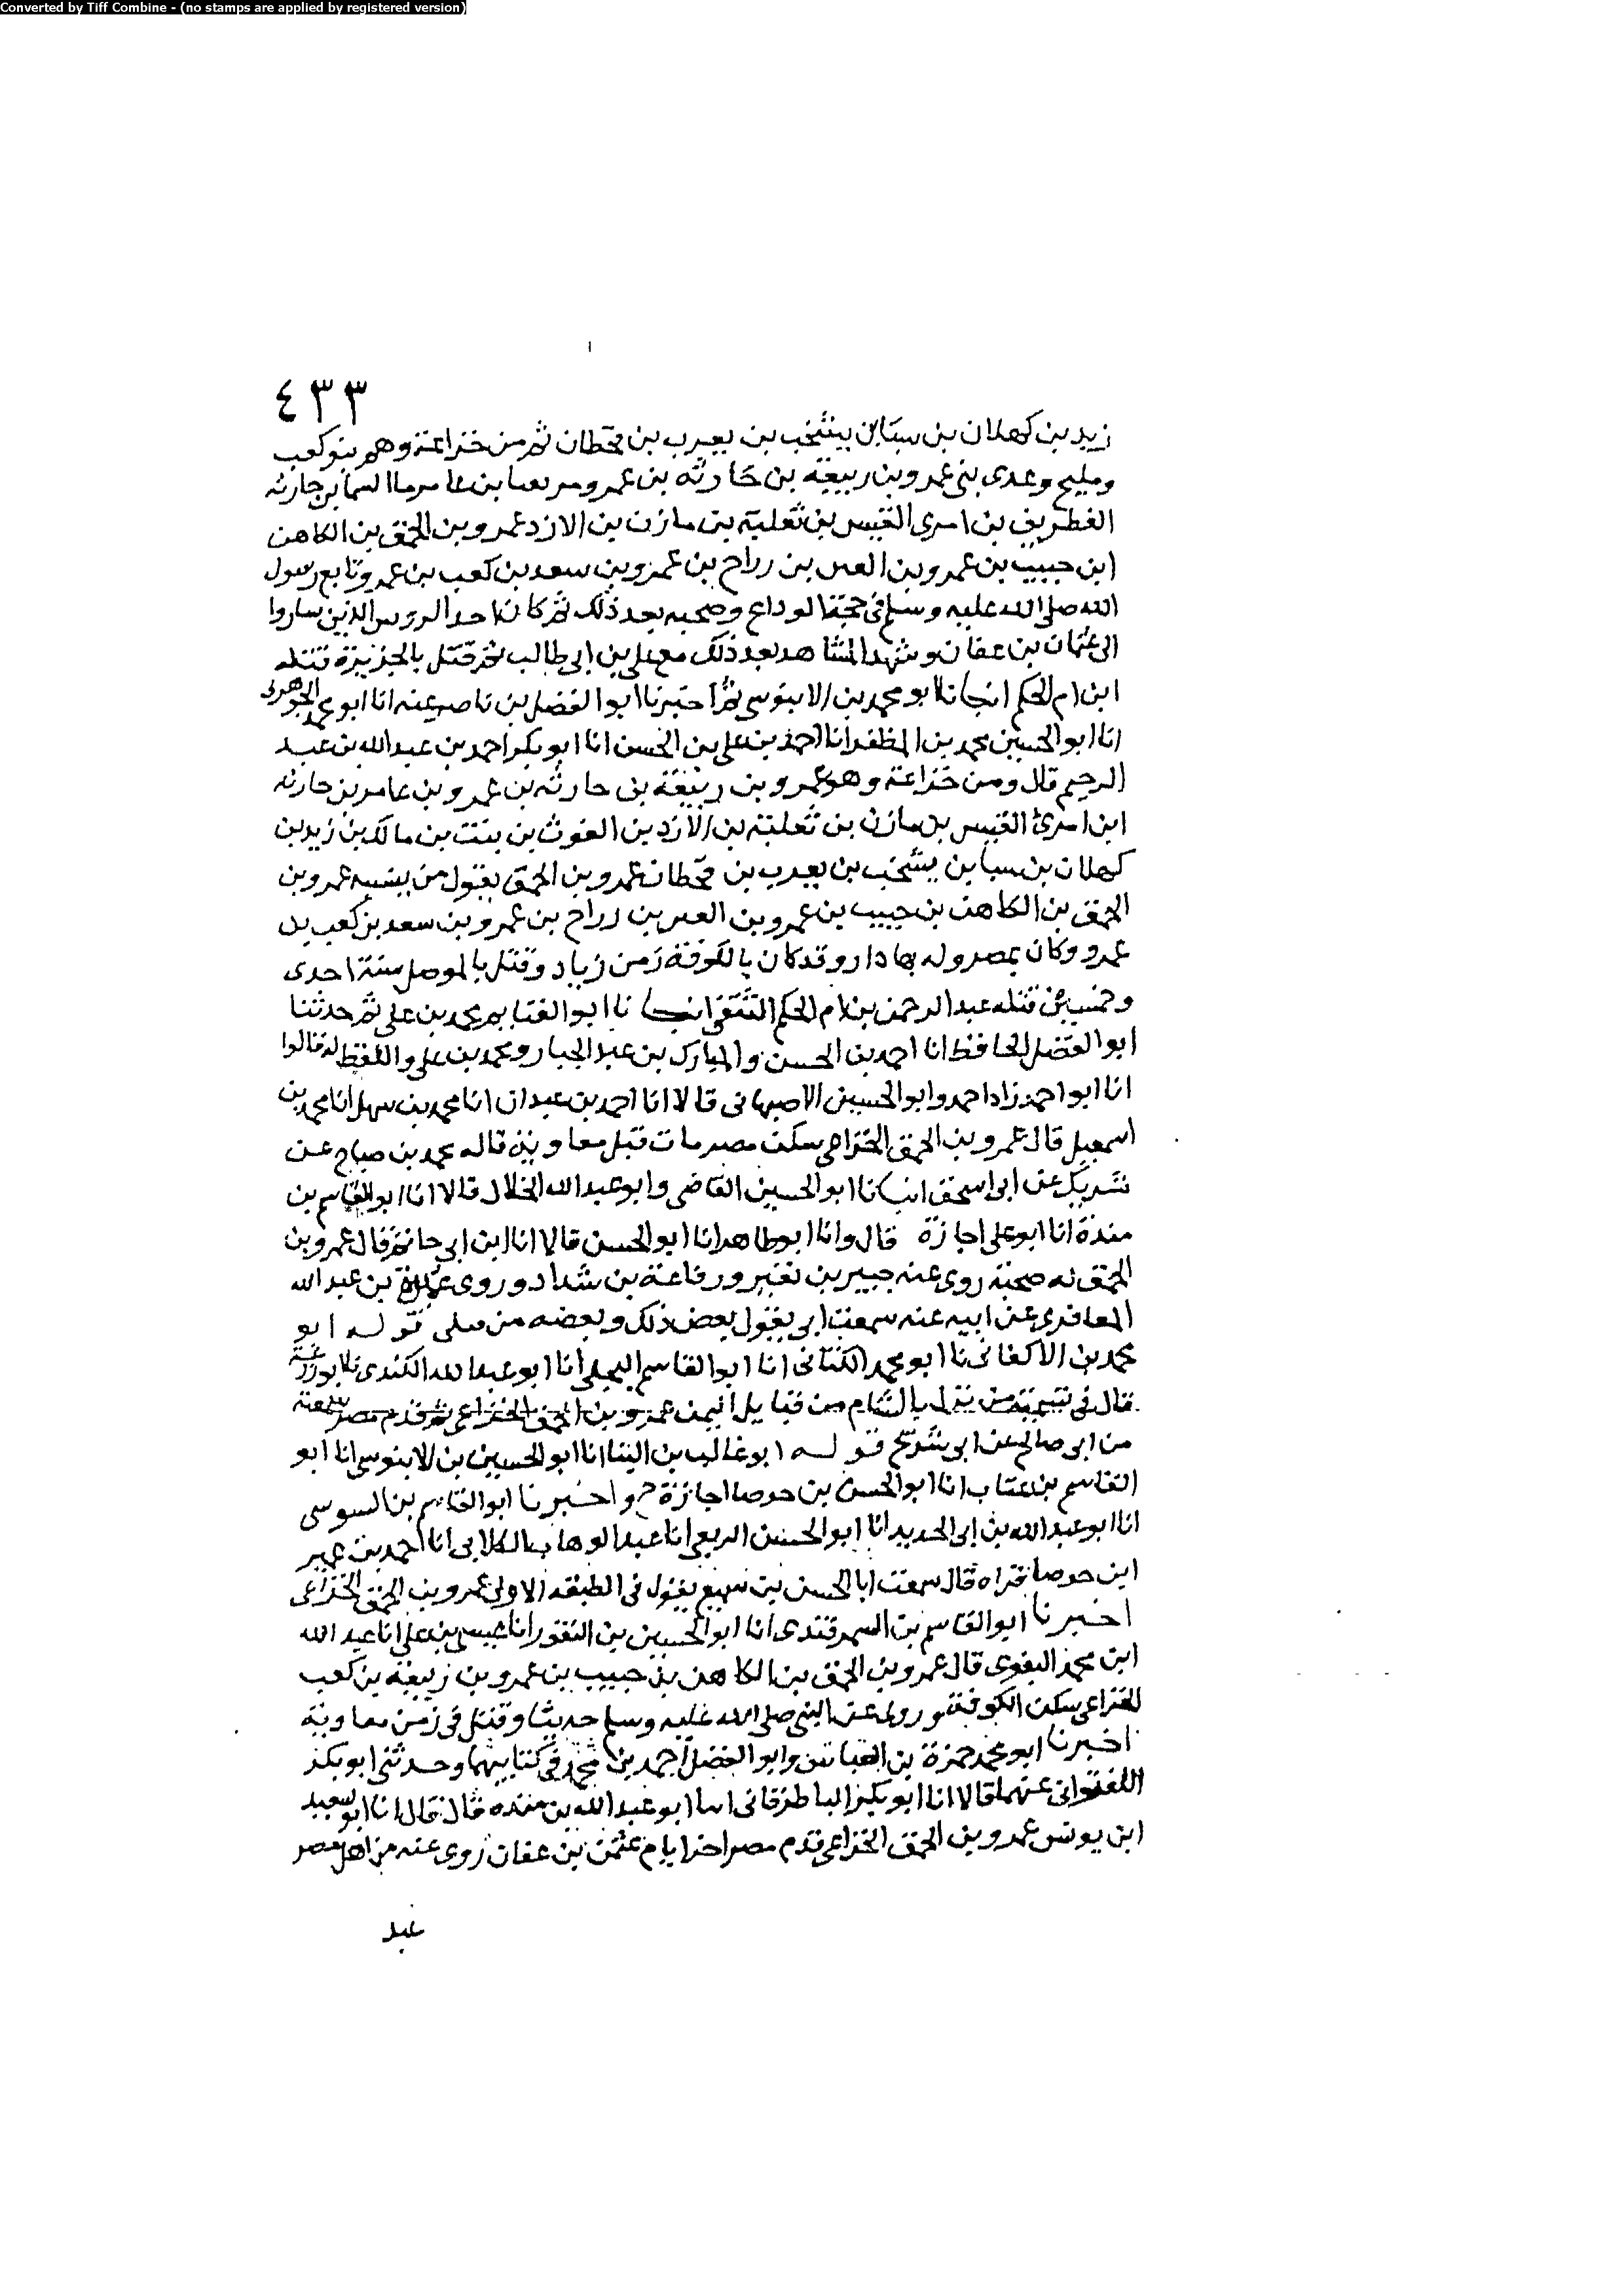 Converted by Tiff Combine - (no stamps are applied by registered version)
٤٣٣
زيد بن كهلان بن سبا بن يشخب بن يعرب بن قحطان ثم من خزاعة وهم بنو كعب
ومليح وعدى بنى عمرو بن ربيعة بن حارثه بن عمرو بن عامر ما السما بن حارثه
الغطريف بن امرى القيس بن ثعلبة بن مازن بن الازد عمرو بن الحمق بن الكاهن
ابن حبيب بن عمرو بن العس بن رراح بن عمرو بن سعد بن كعب بن عمرو تابع رسول
الله صلى الله عليه وسلم فى حجة الوداع وصحبه بعد ذلك ثم كان احد الروس الذين ساروا
الى عثمان بن عفان وشهد المشاهد بعد ذلك مع على بن ابى طالب ثم قتل بالجزيرة قتله
ابن ام الحكم انبانا ابو محمد بن الابنوسى ثم اخبرنا ابو الفضل بن ناصر عنه انا ابو محمد الجوهرى
انا ابو الحسين محمد بن المظفر انا احمد بن على بن الحسن انا ابو بكر احمد بن عبد الله بن عبد
الرحيم قال ومن خزاعة وهو عمرو بن ربيعة بن حارثه بن عمرو بن عامر بن حارثه
ابن امرئ القيس بن مازن بن ثعلبة بن الازد بن الغوث بن بنت بن مالك بن زيد بن
كهلان بن سبا بن يشخب بن يعرب بن قحطان عمرو بن الحمق يقول من ينسبه عمرو بن
الحمق بن الكاهن بن حبيب بن عمرو بن العس بن رراح بن عمرو بن سعد بن كعب بن
عمرو وكان بمصر وله بها دار وقد كان بالكوفة زمن زياد وقتل بالموصل سنة احدى
وخمسين قتله عبد الرحمن بن ام الحكم الثقفى انبانا ابو الغنايم محمد بن على ثم حدثنا
ابو الفضل الحافظ انا احمد بن الحسن والمبارك بن عبد الجبار ومحمد بن على واللفظ له قالوا
انا ابو احمد زاد احمد وابو الحسين الاصبهانى قالا انا احمد بن عبدان انا محمد بن سهل انا محمد بن
اسمعيل قال عمرو بن الحمق الخزاعى سكن مصر مات قبل معاوية قاله محمد بن صباح عن
شريك عن ابى اسحق انبانا ابو الحسين القاضى وابو عبد الله الخلال قالا انا ابو القاسم بن
مندة انا ابو على اجازة قال وانا ابو طاهر انا ابو الحسن قالا انا ابن ابى حاتم قال عمرو بن
الحمق له صحبة روى عنه جبير بن نفير ورفاعة بن شداد وروى عميرة بن عبد الله
المعافرى عن ابيه عنه سمعت ابى يقول بعض ذلك وبعضه من قبلى قوله ابو
محمد بن الاكفانى نا ابو محمد الكتانى انا ابو القاسم البجلى انا ابو عبد الله الكندى نا ابو زرعة
قال فى تسمية من نزل بالشام من قبايل اليمن عمرو بن الحمق الخزاعى ثم قدم مصر سمعته
من ابى صالح عن ابى شريح قوله ابو غالب بن البنا انا ابو الحسين بن الابنوسى انا ابو
القاسم بن عتاب انا ابو الحسن بن حوصا اجازة ح واخبرنا ابو القاسم بن السوسى
انا ابو عبد الله بن ابى الحديد انا ابو الحسن الربعى انا عبد الوهاب الكلابى انا احمد بن عمير
ابن حوصا قراه قال سمعت ابا الحسن بن سميع يقول فى الطبقه الاولى عمرو بن الحمق الخزاعى
اخبرنا ابو القاسم بن السمرقندى انا ابو الحسين بن النقور انا عيسى بن على انا عبد الله
ابن محمد البغوى قال عمرو بن الحمق بن الكاهن بن حبيب بن عمرو بن ربيعة بن كعب
الخزاعى سكن الكوفة وروى عن النبى صلى الله عليه وسلم حديثا وقتل فى زمن معاوية
اخبرنا ابو محمد حمزة بن العباس وابو الفضل احمد بن محمد فى كتابيهما وحدثنى ابو بكر
اللفتوانى عنهما قالا انا ابو بكر الباطرقانى انا ابو عبد الله بن منده قال قال انا ابو سعيد
ابن يونس عمرو بن الحمق الخزاعى قدم مصر احد ايام عثمن بن عفان روى عنه من اهل مصر
عبد